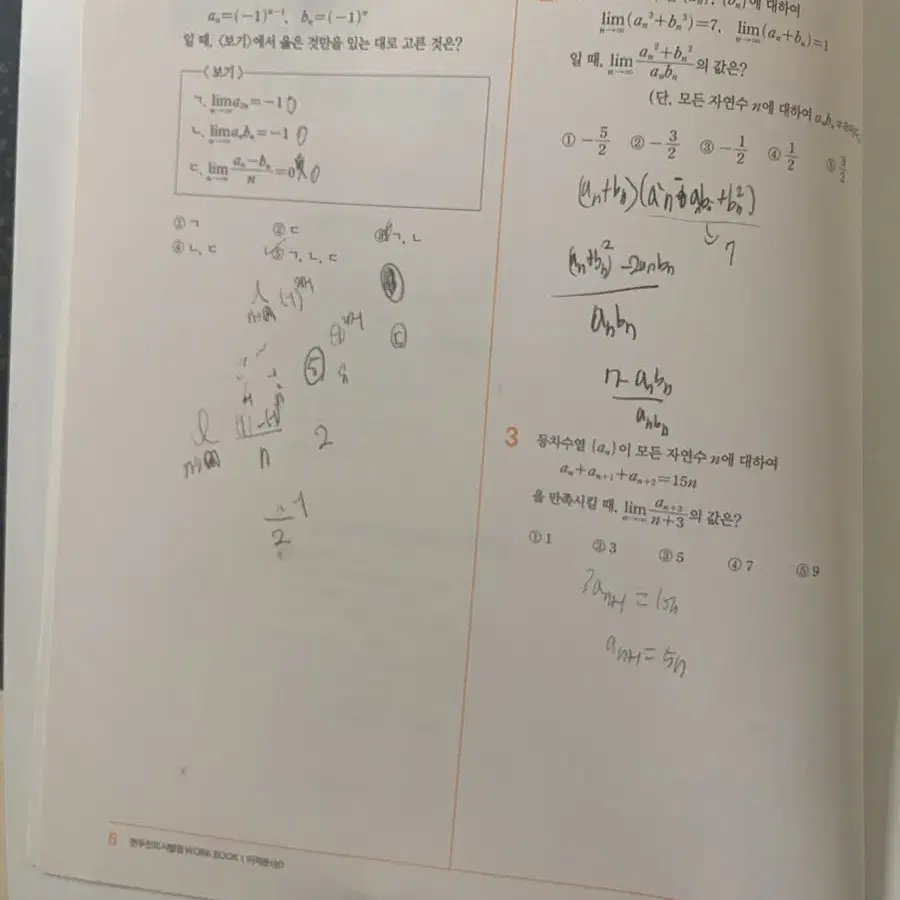 aₙ=(-1)ⁿ⁻¹, bₙ=(-1)ⁿ
일 때, 〈보기〉에서 옳은 것만을 있는 대로 고른 것은?
〈보기〉
ㄱ. lim a₂ₙ=-1 O
n→∞
ㄴ. lim aₙbₙ=-1 O
n→∞
ㄷ. lim (aₙ-bₙ)/N=0 O
n→∞
① ㄱ ② ㄷ ③ ㄱ, ㄴ
④ ㄴ, ㄷ ⑤ ㄱ, ㄴ, ㄷ
⑤
n
2
에 대하여
lim(aₙ³+bₙ³)=7, lim(aₙ+bₙ)=1
n→∞ n→∞
일 때, lim (aₙ²+bₙ²)/(aₙbₙ)의 값은?
n→∞
(단, 모든 자연수 n에 대하여 aₙbₙ≠0
① -5/2 ② -3/2 ③ -1/2 ④ 1/2 ⑤ 3/2
(aₙ+bₙ)(a²ₙ - aₙbₙ+bₙ²)
7
(aₙ+bₙ)² -2aₙbₙ
aₙbₙ
- aₙbₙ
aₙbₙ
3 등차수열 {aₙ}이 모든 자연수 n에 대하여
aₙ+aₙ₊₁+aₙ₊₂=15n
을 만족시킬 때, lim aₙ₊₃/(n+3)의 값은?
n→∞
① 1 ② 3 ③ 5 ④ 7 ⑤ 9
3aₙ₊₁ = 15n
aₙ₊₁ = 5n
6 WORK BOOK